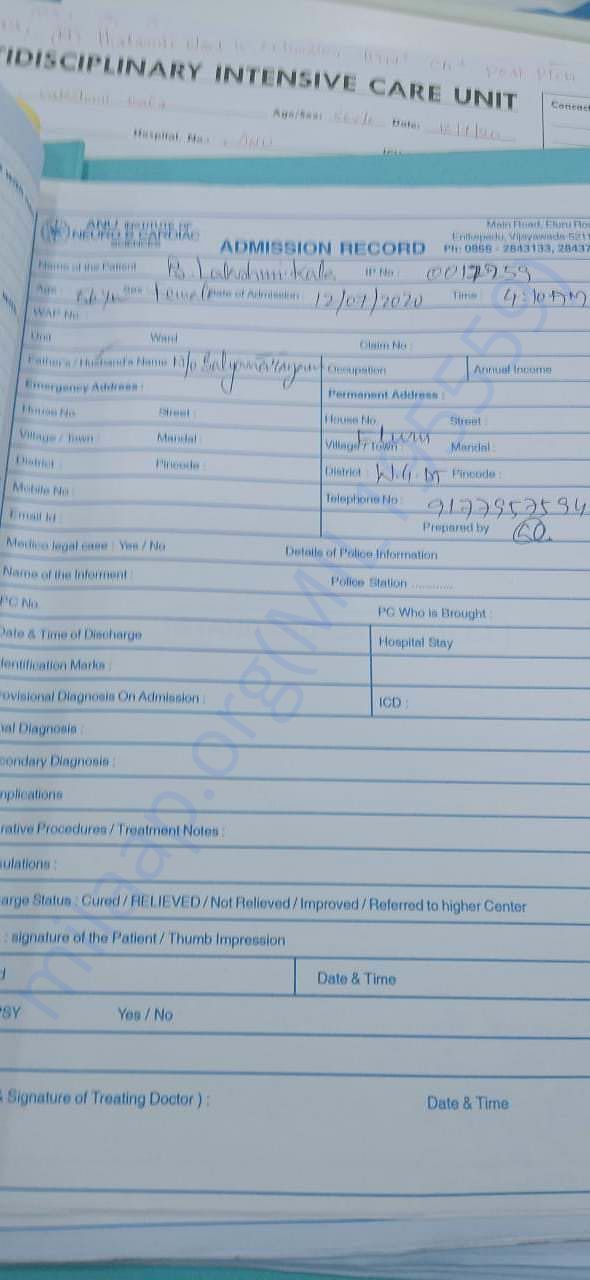 TIDISCIPLINARY INTENSIVE CARE UNIT
Age/Sex: Date:
Hospital No.: ANU
ANU INSTITUTE OF
NEURO & CARDIAC
SCIENCES
Main Road, Eluru Ro
Enikepadu, Vijayawada-521
ADMISSION RECORD Ph: 0866 - 2843133, 2843
Name of the Patient B. Lakshmi kala IP No : 0017959
Age : Sex : Female Date of Admission : 12/07/2020 Time : 4:10 AM
WAP No :
Unit Ward Claim No :
Father's / Husband's Name W/o Satyanarayana Occupation Annual Income
Emergency Address : Permanent Address :
House No Street : House No. Street :
Village / Town : Mandal : Village / Town : Eluru Mandal :
District : Pincode : District : W.G.Dt Pincode :
Mobile No : Telephone No : 9177957594
Email Id : Prepared by
Medico legal case : Yes / No Details of Police Information
Name of the Informent : Police Station ............
PC No. PC Who is Brought :
Date & Time of Discharge Hospital Stay
dentification Marks :
rovisional Diagnosis On Admission : ICD :
nal Diagnosis :
condary Diagnosis :
mplications
rative Procedures / Treatment Notes :
sulations :
arge Status : Cured / RELIEVED / Not Relieved / Improved / Referred to higher Center
: signature of the Patient / Thumb Impression
d Date & Time
PSY Yes / No
& Signature of Treating Doctor ) : Date & Time
milaap.org(MIL195559)